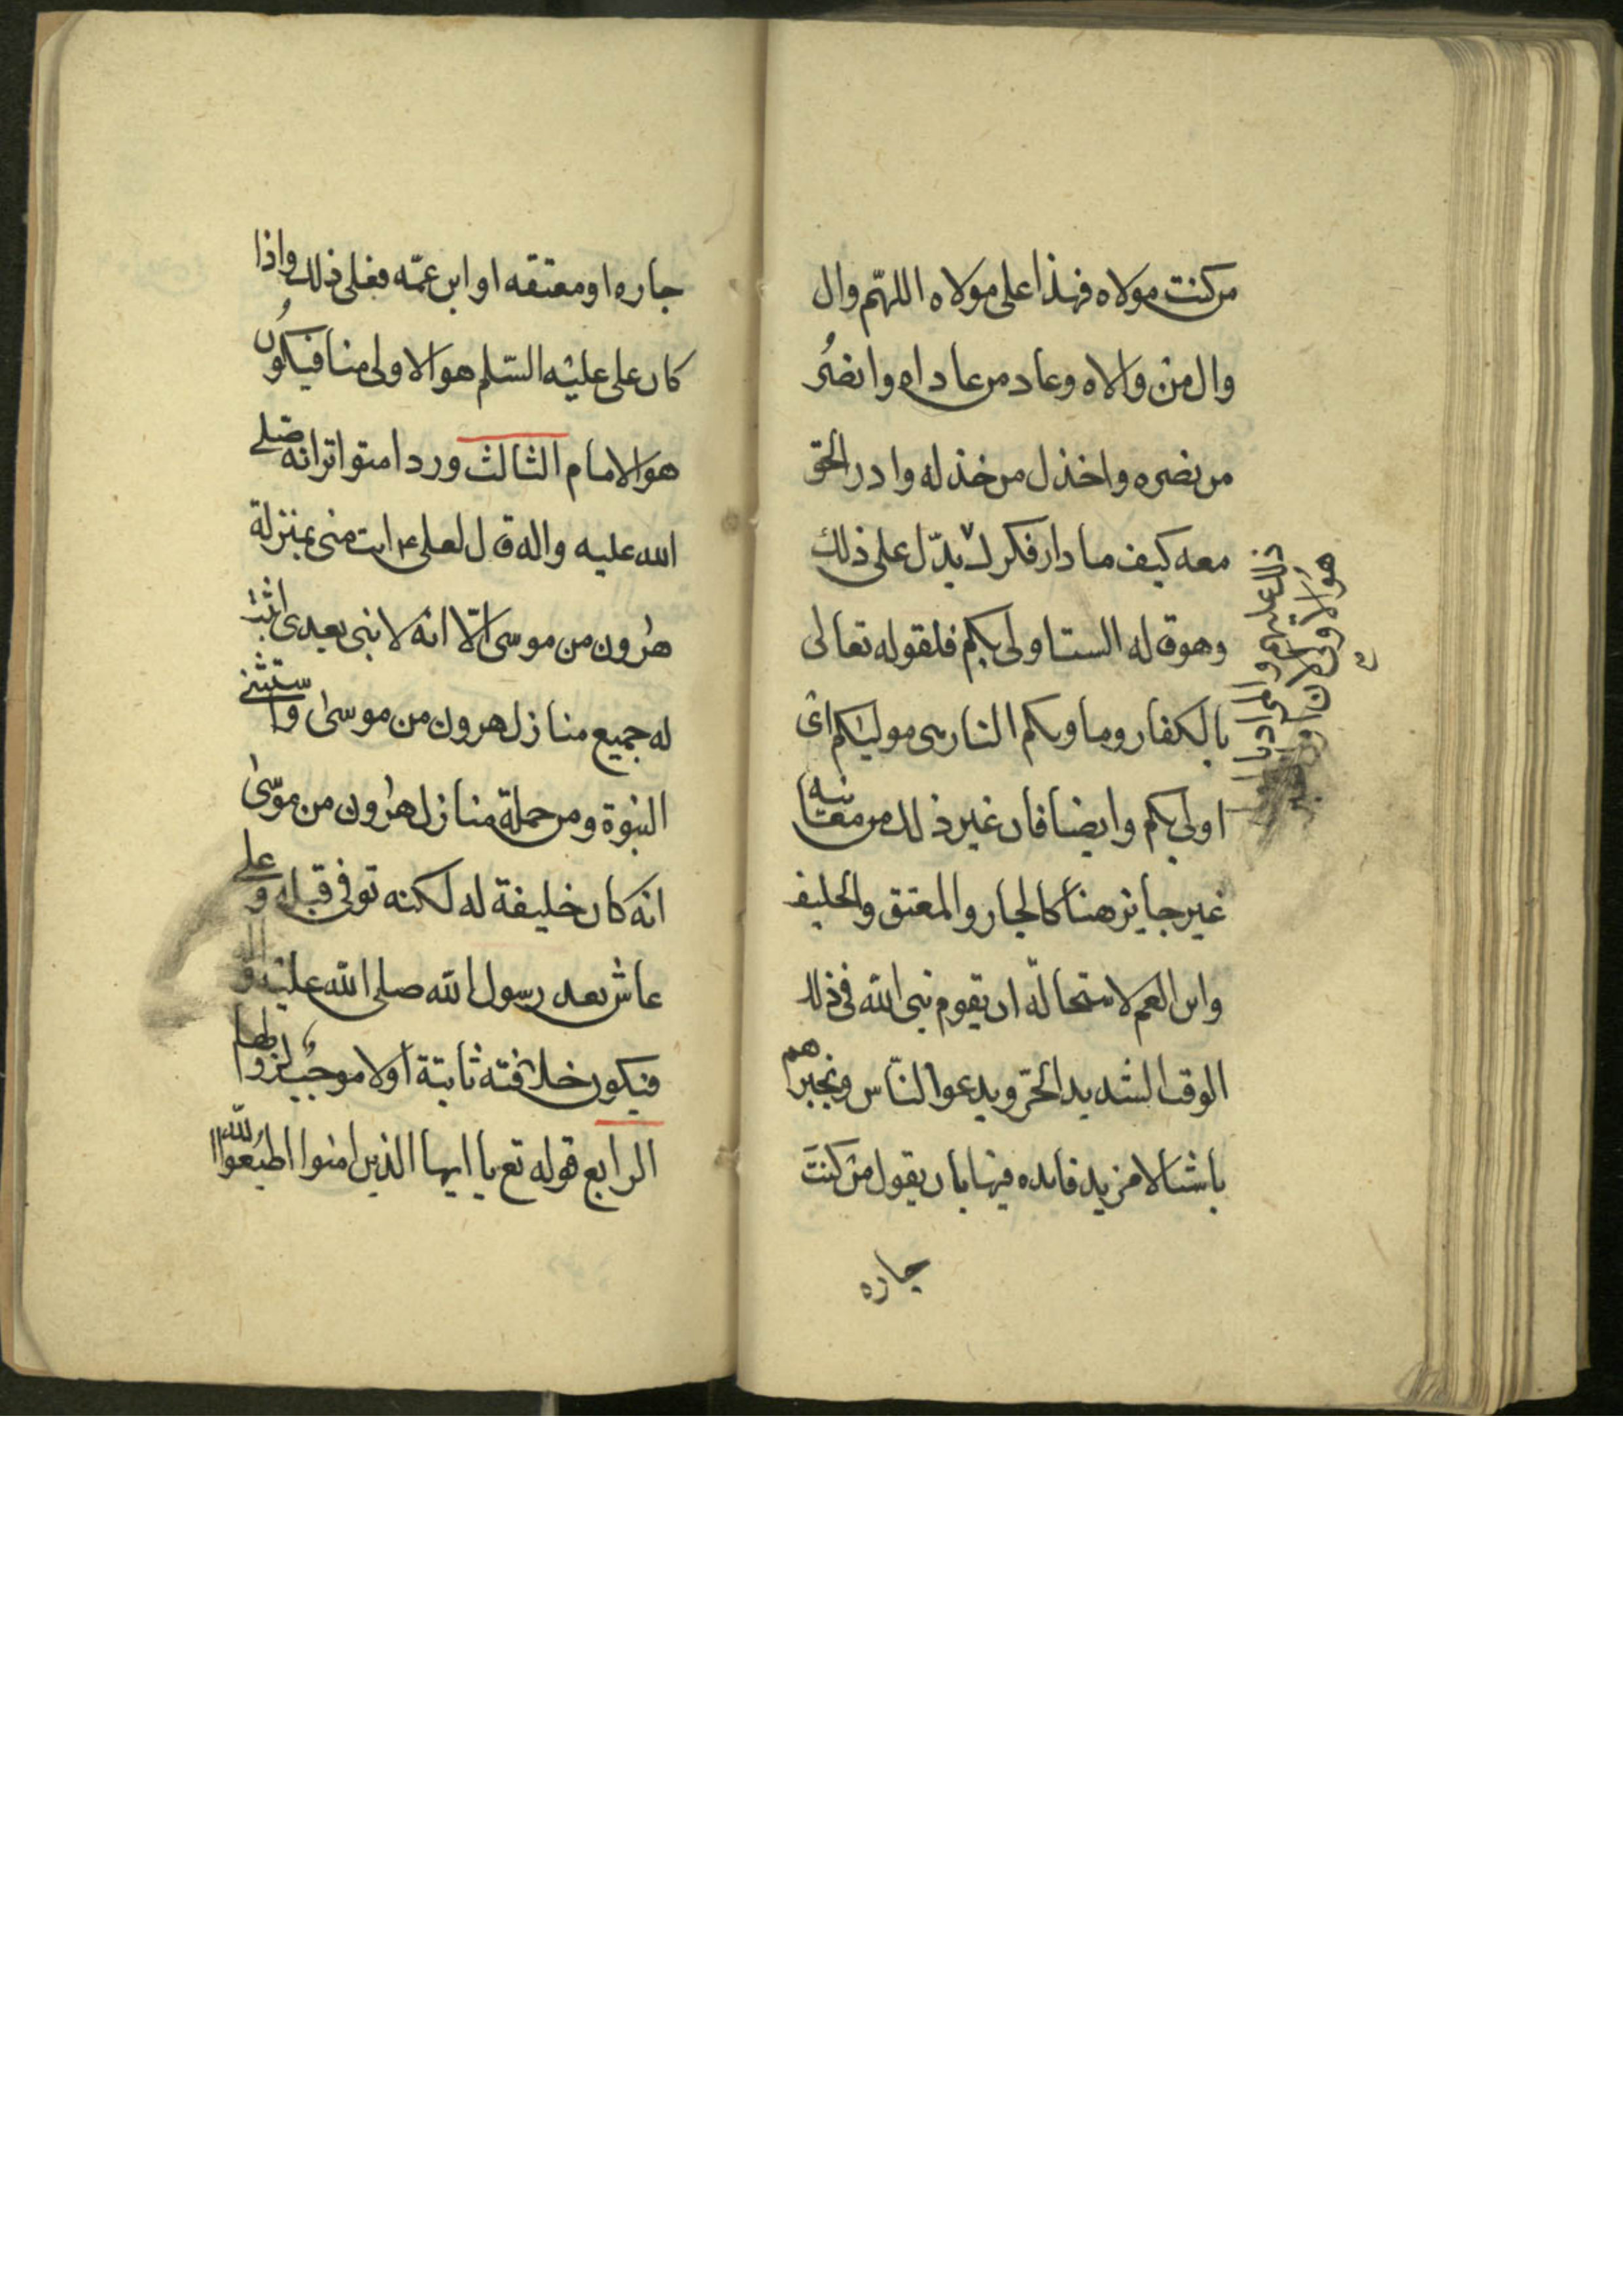 من كنت مولاه فهذا على مولاه اللهم وال
وال من والاه وعاد من عاداه وانصر
من نصره واخذل من خذله وادر الحق
معه كيف ما دار فكر لا يدل على ذلك
وهو قوله الست اولى بكم فلقوله تعالى
بالكفار وماويكم النار هى موليكم اى
اولى بكم وايضا فان غير ذلك من معانيه
غير جايز هنا كالجار والمعتق والحليف
وابن العم لاستحالة ان يقوم نبى الله فى ذلك
الوقت الشديد الحر ويدعوا الناس ويخبرهم
باشيا لا مزيد فايده فيها بان يقول من كنت
جاره
ذلك عليهم والمراد با
هو الاولى لان اول
جاره او معتقه او ابن عمه فعلى ذلك واذا
كان على عليه السلم هو الاولى منا فيكون
هو الامام الثالث ورد متواترا انه صلى
الله عليه واله قال لعلى ع انت منى بمنزلة
هرون من موسى الا انه لا نبى بعدى اثبت
له جميع منازل هرون من موسى واستثنى
النبوة ومن جملة منازل هرون من موسى
انه كان خليفة له لكنه توفى قبله وعلى
عاش بعد رسول الله صلى الله عليه واله
فيكون خلافته ثابتة اولا موجب لزوالها
الرابع قوله تع يا ايها الذين امنوا اطيعوا الله